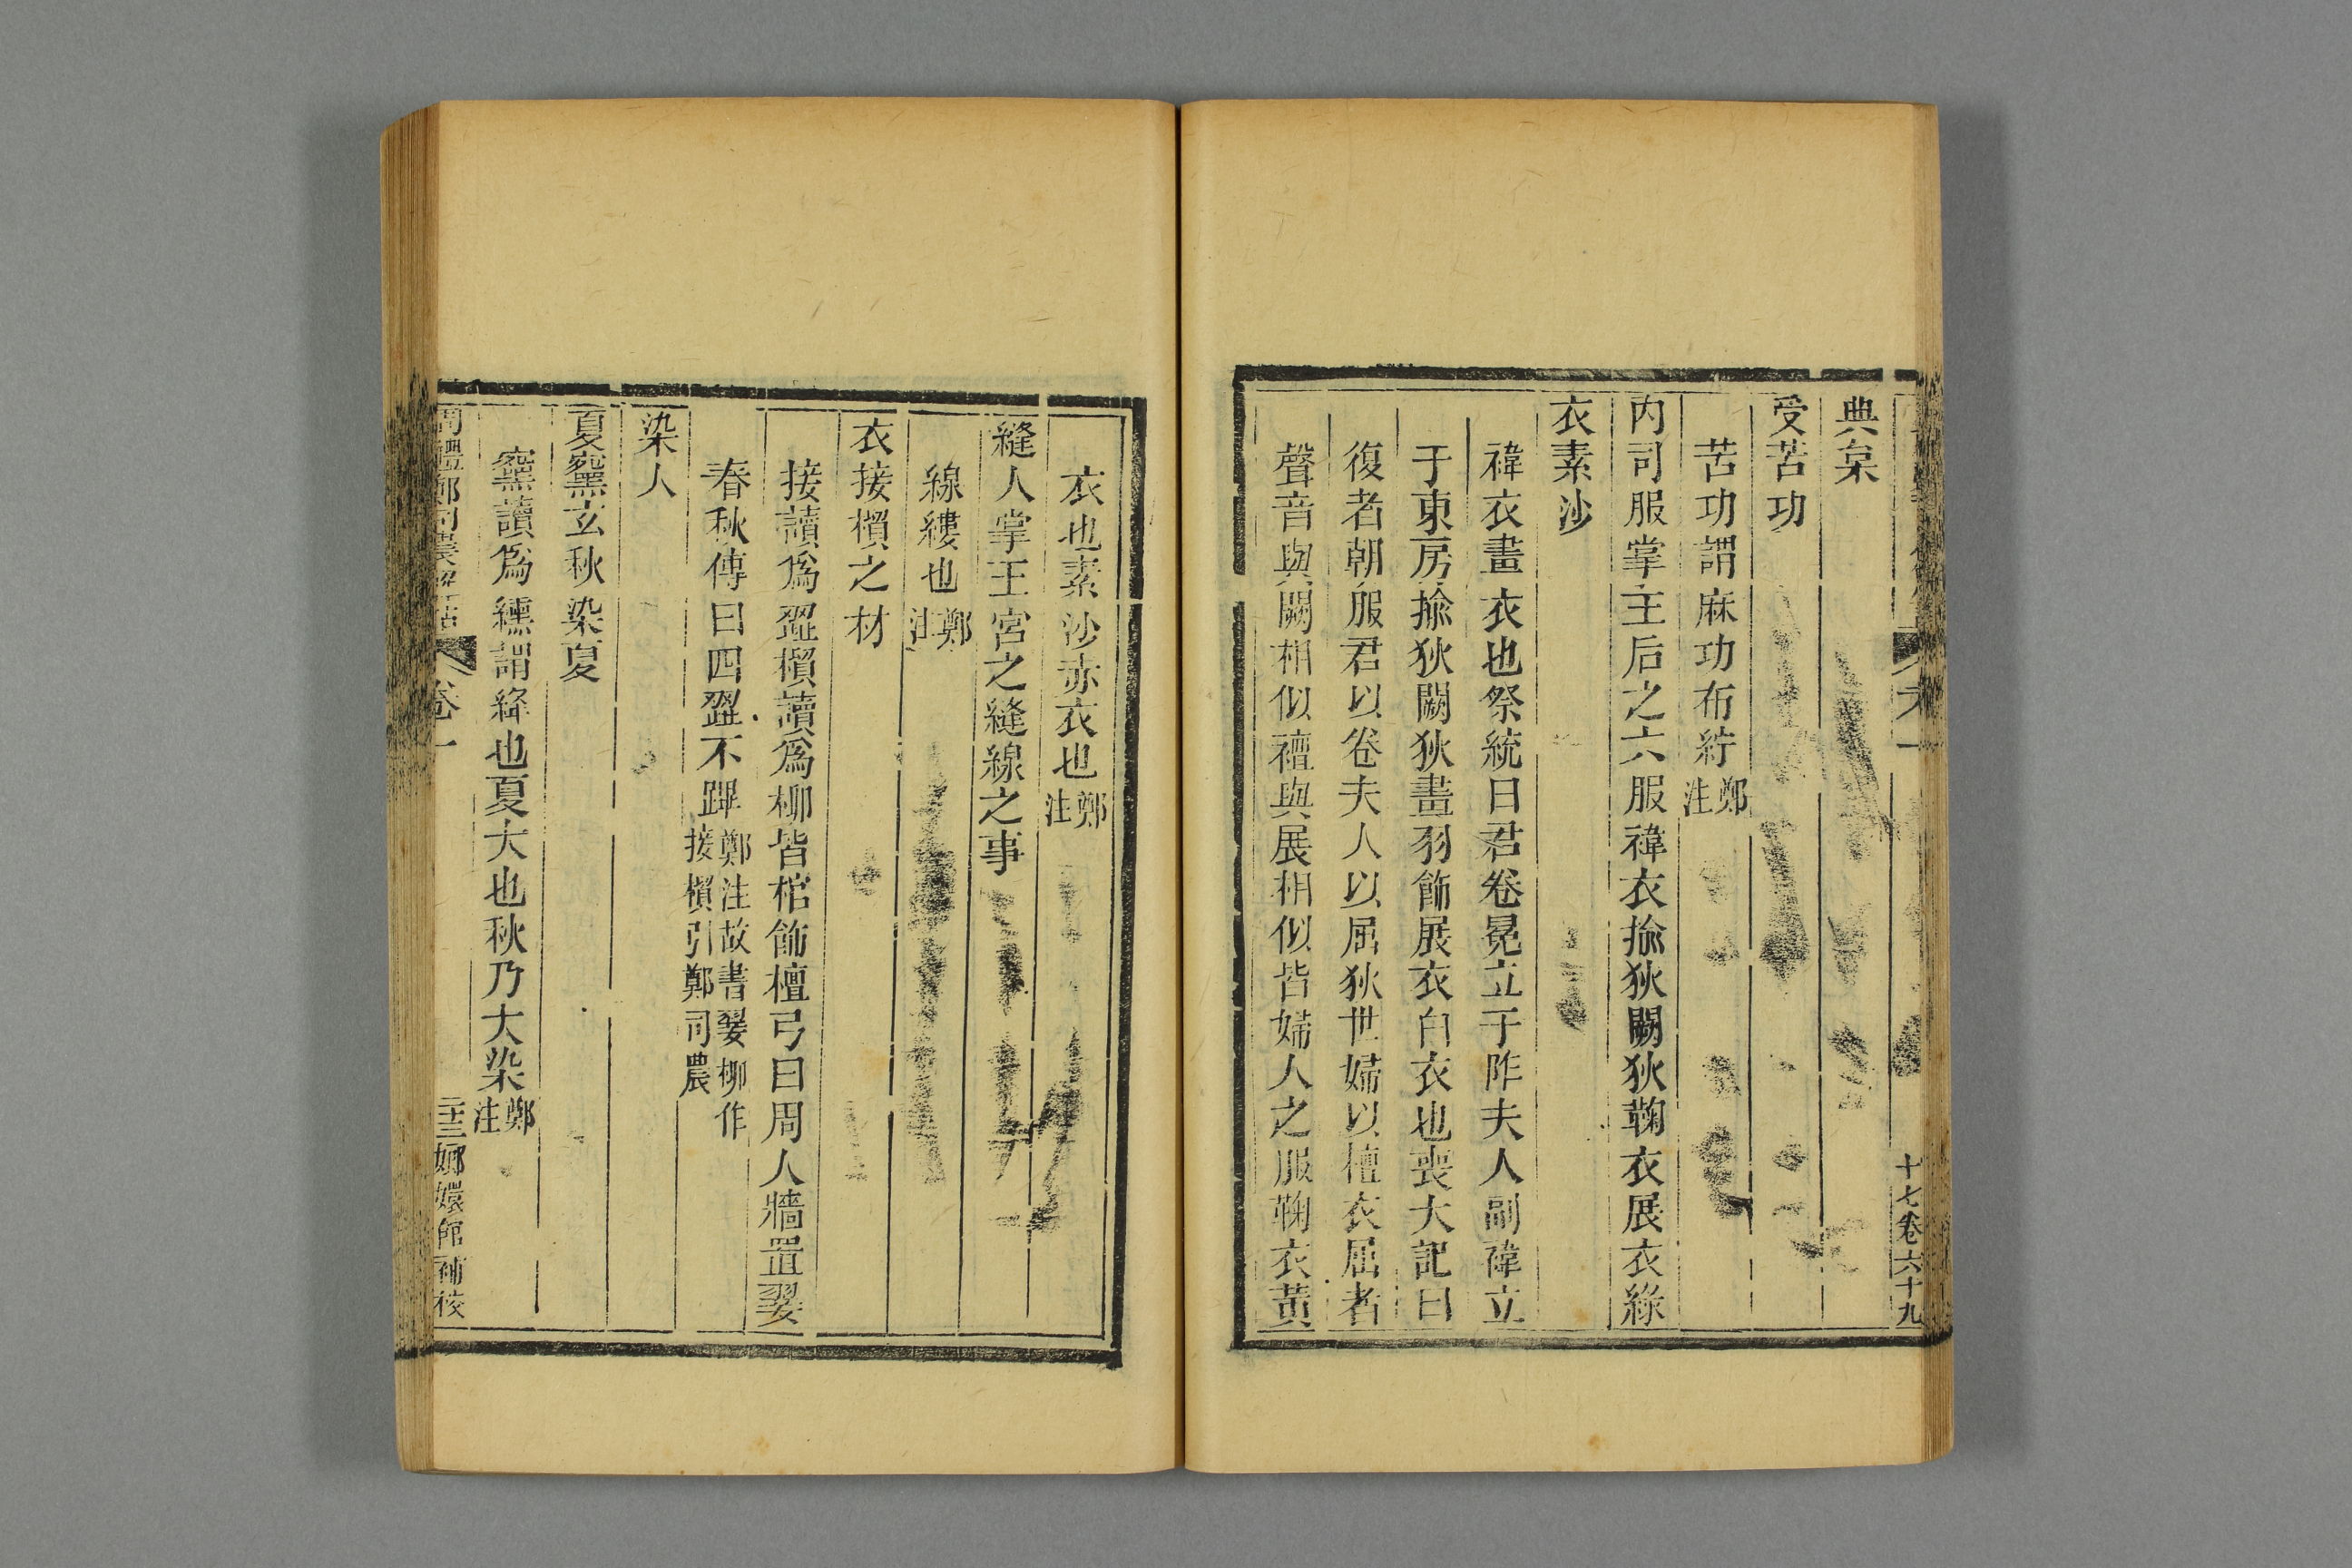 十七卷六十九
典枲
受苦功
苦功謂麻功布紵鄭注
内司服掌王后之六服褘衣揄狄闕狄鞠衣展衣綠
衣素沙
褘衣畫衣也祭統曰君卷冕立于阼夫人副褘立
于東房揄狄闕狄畫羽飾展衣白衣也喪大記曰
復者朝服君以卷夫人以屈狄世婦以襢衣屈者
聲音與闕相似襢與展相似皆婦人之服鞠衣黃
衣也素沙赤衣也鄭注
縫人掌王宮之縫線之事
線縷也鄭注
衣接檟之材
接讀爲歰檟讀爲柳皆棺飾檀弓曰周人牆置翣
春秋傳曰四歰不蹕鄭注故書翣柳作接檟引鄭司農
染人
夏䵫玄秋染夏
䵫讀爲纁謂絳也夏大也秋乃大染鄭注
周禮鄭司農解詁 卷一 二十三 嫏嬛館補校